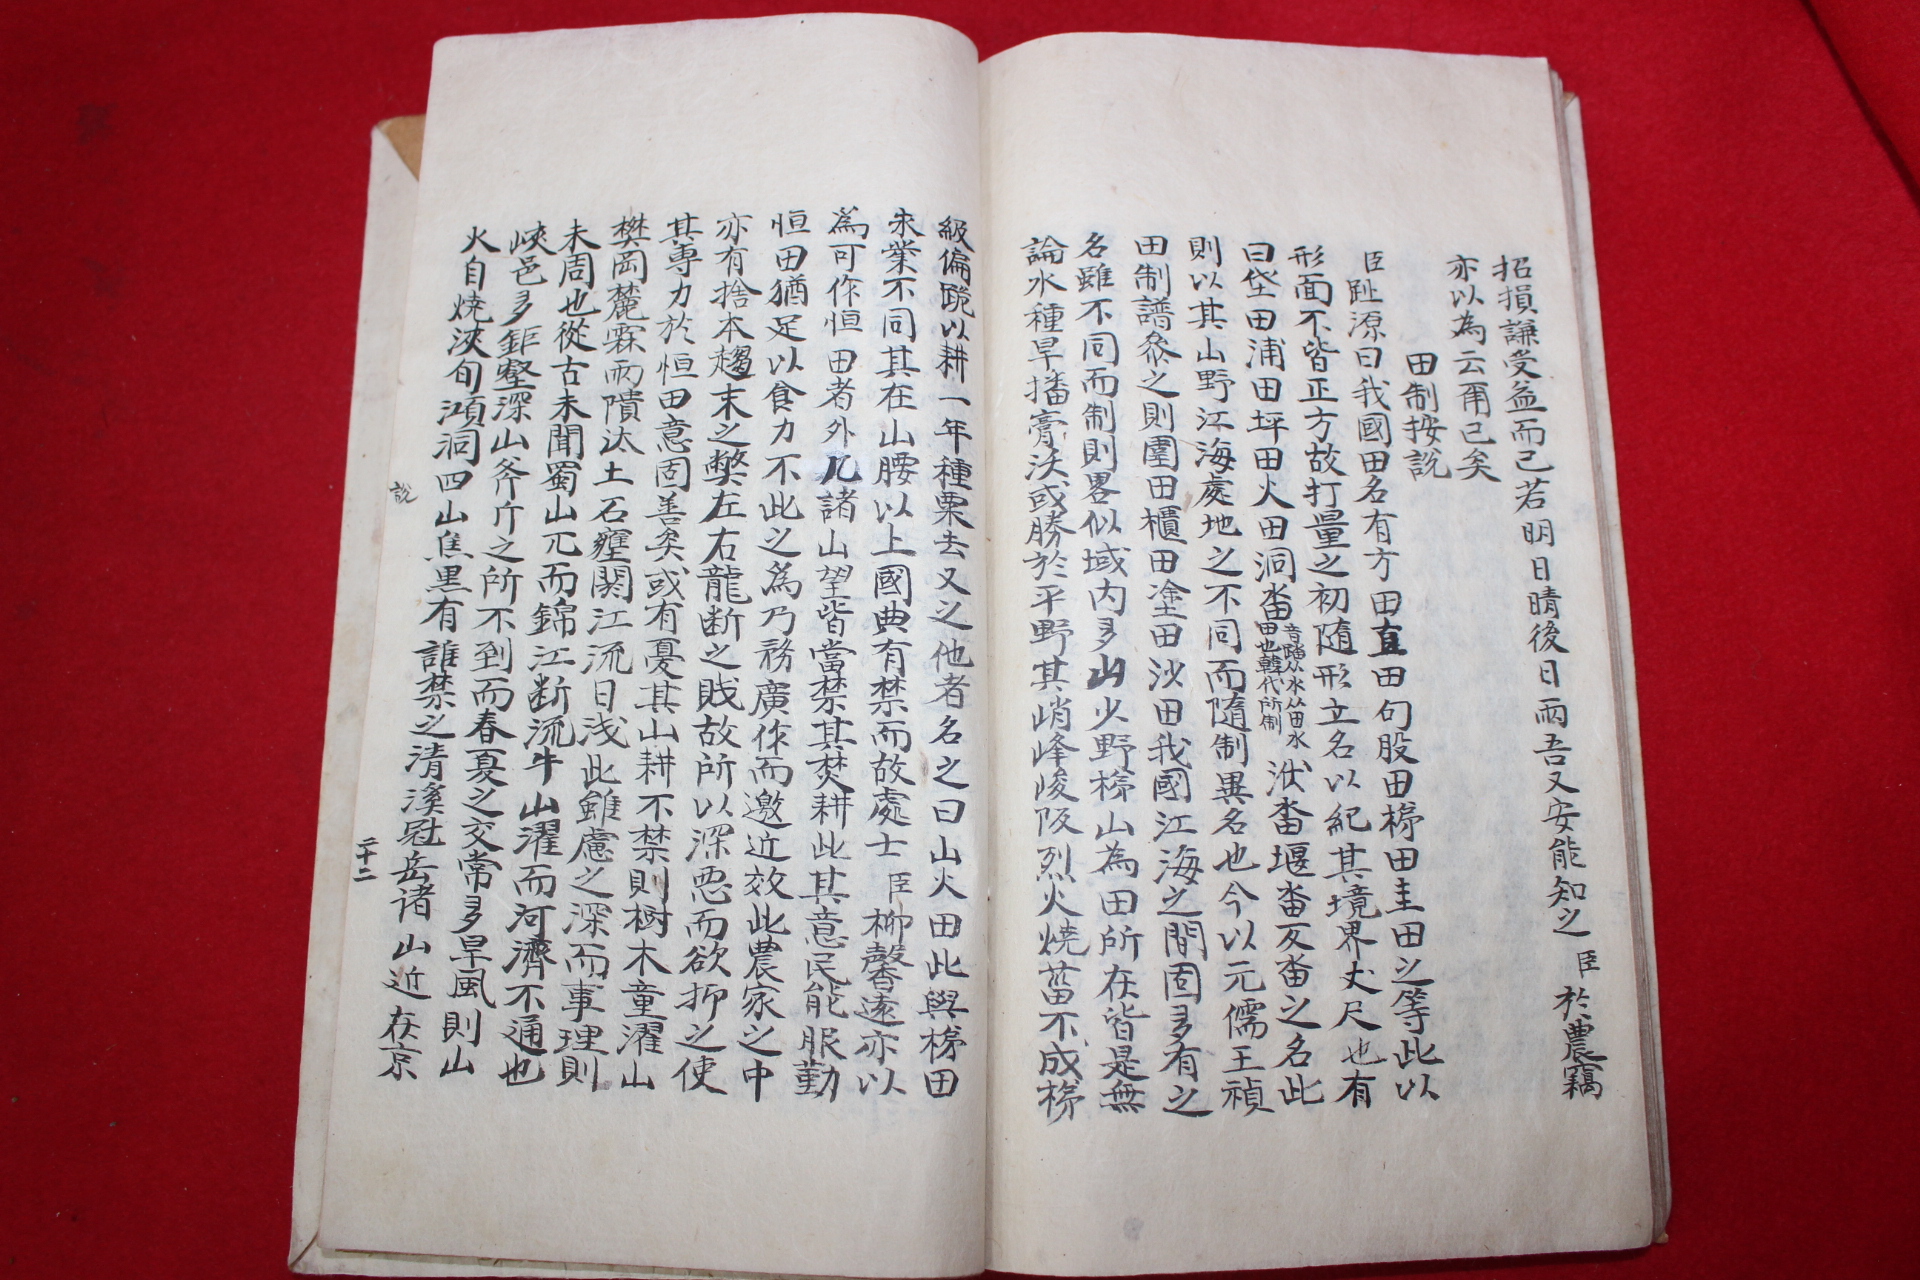 招損謙受益而已若明日晴後日雨吾又安能知之臣於農竊
亦以為云爾已矣
田制按說
臣趾源曰我國田名有方田直田句股田梯田圭田之等此以
形面不皆正方故打量之初隨形立名以紀其境界丈尺也有
曰垈田浦田坪田火田洞畓音踏从水从田水田也韓代所制洑畓堰畓反畓之名此
則以其山野江海處地之不同而隨制異名也今以元儒王禎
田制譜叅之則圍田櫃田塗田沙田我國江海之間固多有之
名雖不同而制則畧似域內多山少野梯山為田所在皆是無
論水種旱播膏沃或勝於平野其峭峰峻阪烈火燒菑不成梯
級偏跪以耕一年種粟去又之他者名之曰山火田此與梯田
來業不同其在山腰以上國典有禁而故處士臣柳馨遠亦以
為可作恒田者外凡諸山望皆當禁其焚耕此其意民能服勤
恒田猶足以食力不此之為乃務廣作而邀近效此農家之中
亦有捨本趨末之弊左右龍断之賎故所以深惡而欲抑之使
其專力於恒田意固善矣或有憂其山耕不禁則樹木童濯山
樊岡麓霖而隤汰土石壅閼江流日浅此雖慮之深而事理則
未周也從古未聞蜀山兀而錦江断流牛山濯而河濟不通也
峽邑多鉅壑深山斧斤之所不到而春夏之交常多旱風則山
火自燒浹旬澒洞四山焦黒有誰禁之清溪冠岳諸山近在京
說
二十二